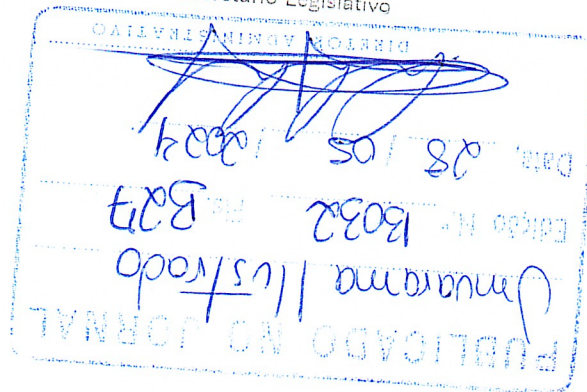 etário Legislativo
PUBLICADO NO JORNAL
Umuarama Ilustrado
Edição N.º 13032 B27
Data, 28 / 05 / 2024
DIRETOR ADMINISTRATIVO